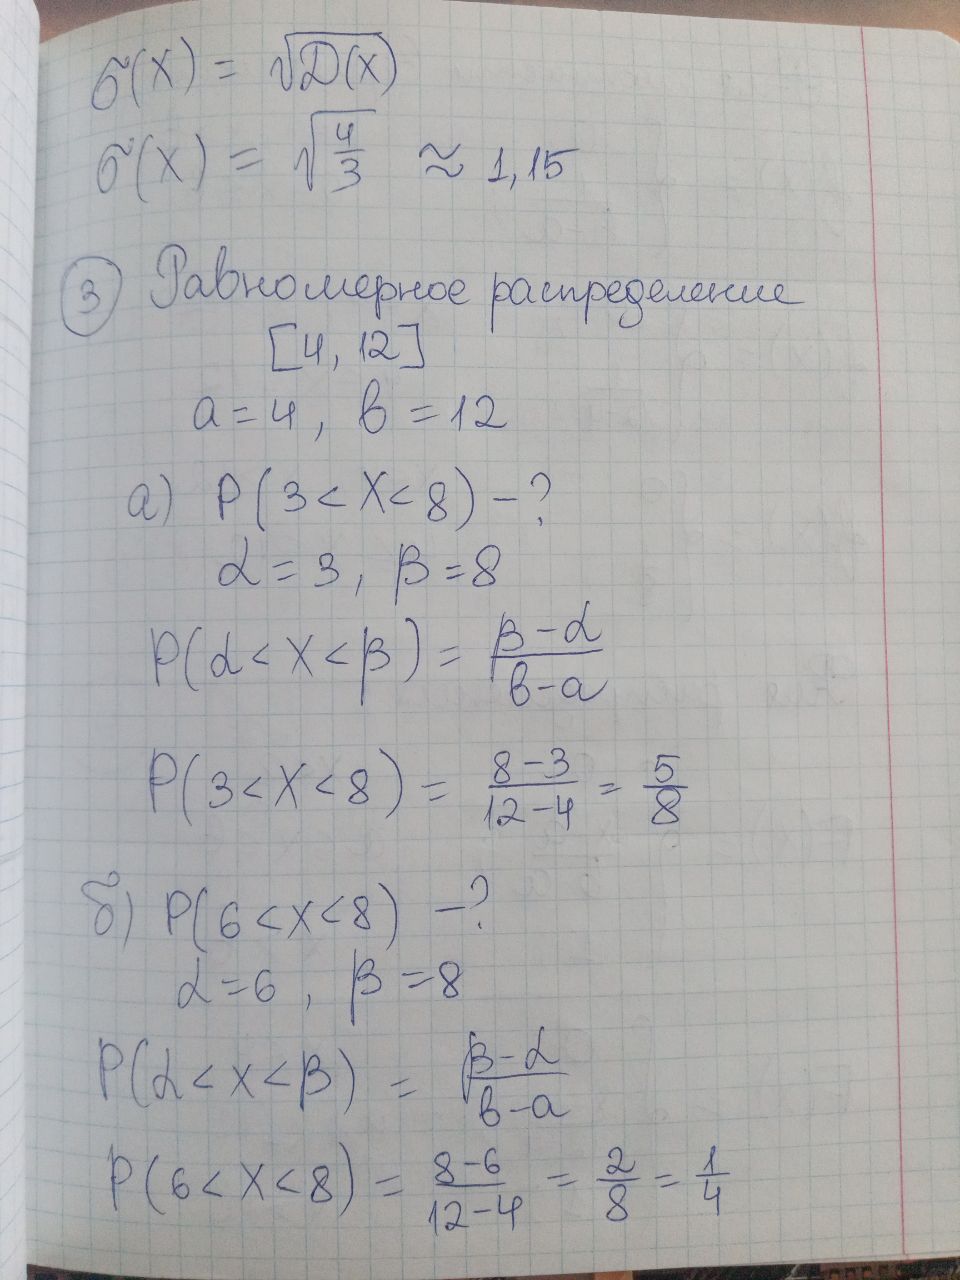 σ(X) = √D(X)
σ(X) = √4/3 ≈ 1,15
3 Равномерное распределение
[4, 12]
a = 4, в = 12
а) P(3 < X < 8) - ?
α = 3, β = 8
P(α < X < β) = β - α / в - a
P(3 < X < 8) = 8 - 3 / 12 - 4 = 5/8
б) P(6 < X < 8) - ?
α = 6, β = 8
P(α < X < β) = β - α / в - a
P(6 < X < 8) = 8 - 6 / 12 - 4 = 2/8 = 1/4